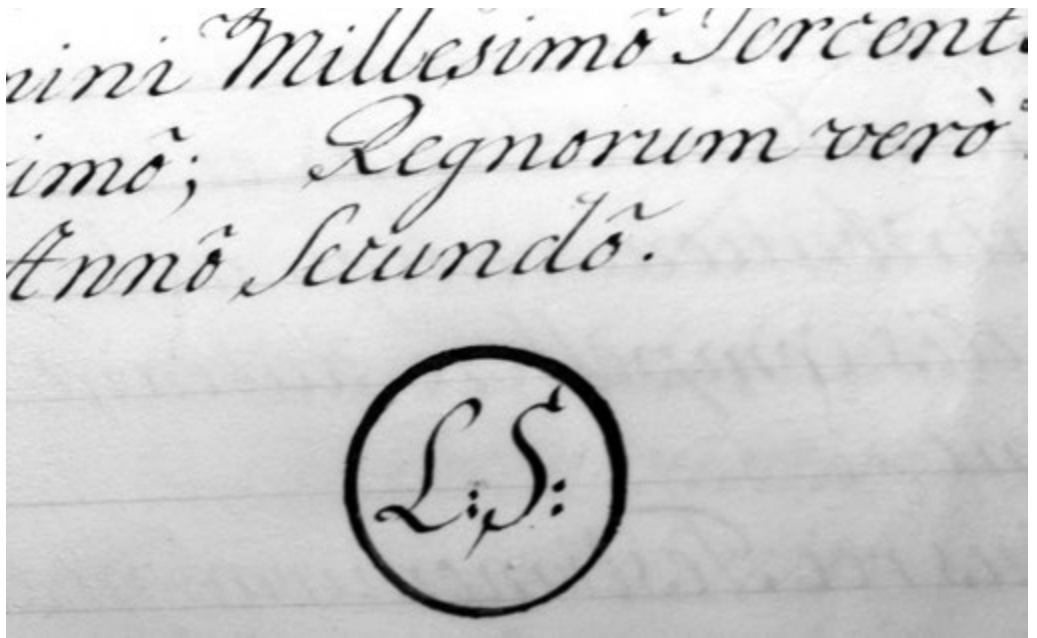 mini Millesimõ Tercent
simõ; Regnorum verò
Annõ Secundõ.
L:S: